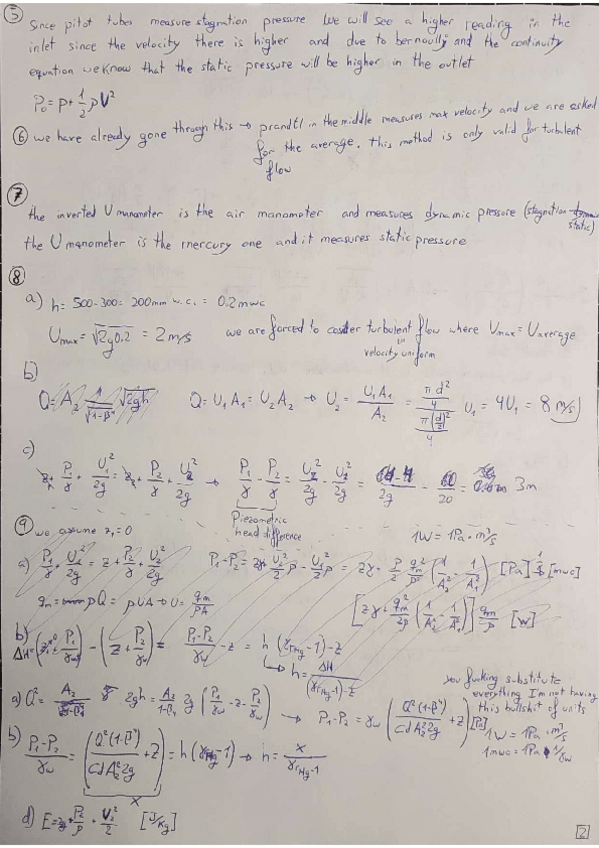 ⑤ Since pitot tubes measure stagnation pressure we will see a higher reading in the
inlet since the velocity there is higher and due to bernoully and the continuity
equation we know that the static pressure will be higher in the outlet
P₀ = P + 1/2 ρV²
⑥ we have already gone through this → prandtl in the middle measures max velocity and we are asked
for the average. this method is only valid for turbulent
flow
⑦
the inverted U manometer is the air manometer and measures dynamic pressure (stagnation - static)
the U manometer is the mercury one and it measures static pressure
⑧
a) h = 500-300 = 200mm w.c. = 0.2mwc
Umax = √2g0.2 = 2 m/s we are forced to turbulent flow where Umax = Uaverage
velocity uniform
b)
Q = A₂ 1/√1-β⁴ √2gh Q = U₁A₁ = U₂A₂ → U₂ = U₁A₁/A₂ = (πd²/4)/(π(d/2)²/4) U₁ = 4U₁ = 8 m/s
c)
z₁ + P₁/γ + U₁²/2g = z₂ + P₂/γ + U₂²/2g → P₁/γ - P₂/γ = U₂²/2g - U₁²/2g = /2g = 60/20 = 3m
Piezometric
head difference
⑨ we assume z₁=0
1W = 1Pa·m³/s
a) P₁/γ + U₁²/2g = z + P₂/γ + U₂²/2g P₁-P₂ = zγ + U₂²/2 ρ - U₁²/2 ρ = zγ + ρ/2 qm²/ρ² (1/A₂² - 1/A₁²) [Pa] [mwc]
qm = ρQ = ρUA → U = qm/ρA [zγ + qm²/2ρ (1/A₂² - 1/A₁²)] qm/ρ [W]
b) ΔH = (z₁ + P₁/γw) - (z + P₂/γw) = P₁-P₂/γw - z = h(γrHg-1) - z
↳ h = ΔH/(γrHg-1)-z
you fucking substitute
everything I'm not having
this bullshit of units
a) Q² = A₂/1-β⁴ 2gh = A₂/1-β⁴ 2g (P₁/γw - z - P₂/γw) → P₁-P₂ = γw (Q²(1-β⁴)/CdA₂²2g + z) [Pa]
1W = 1Pa·m³/s
1mwc = 1Pa·1/γw
b) P₁-P₂/γw = (Q²(1-β⁴)/CdA₂²2g + z) = h(γrHg-1) → h = x/γrHg-1
x
d) E = z + P₂/ρ + U₂²/2 [J/kg]
2